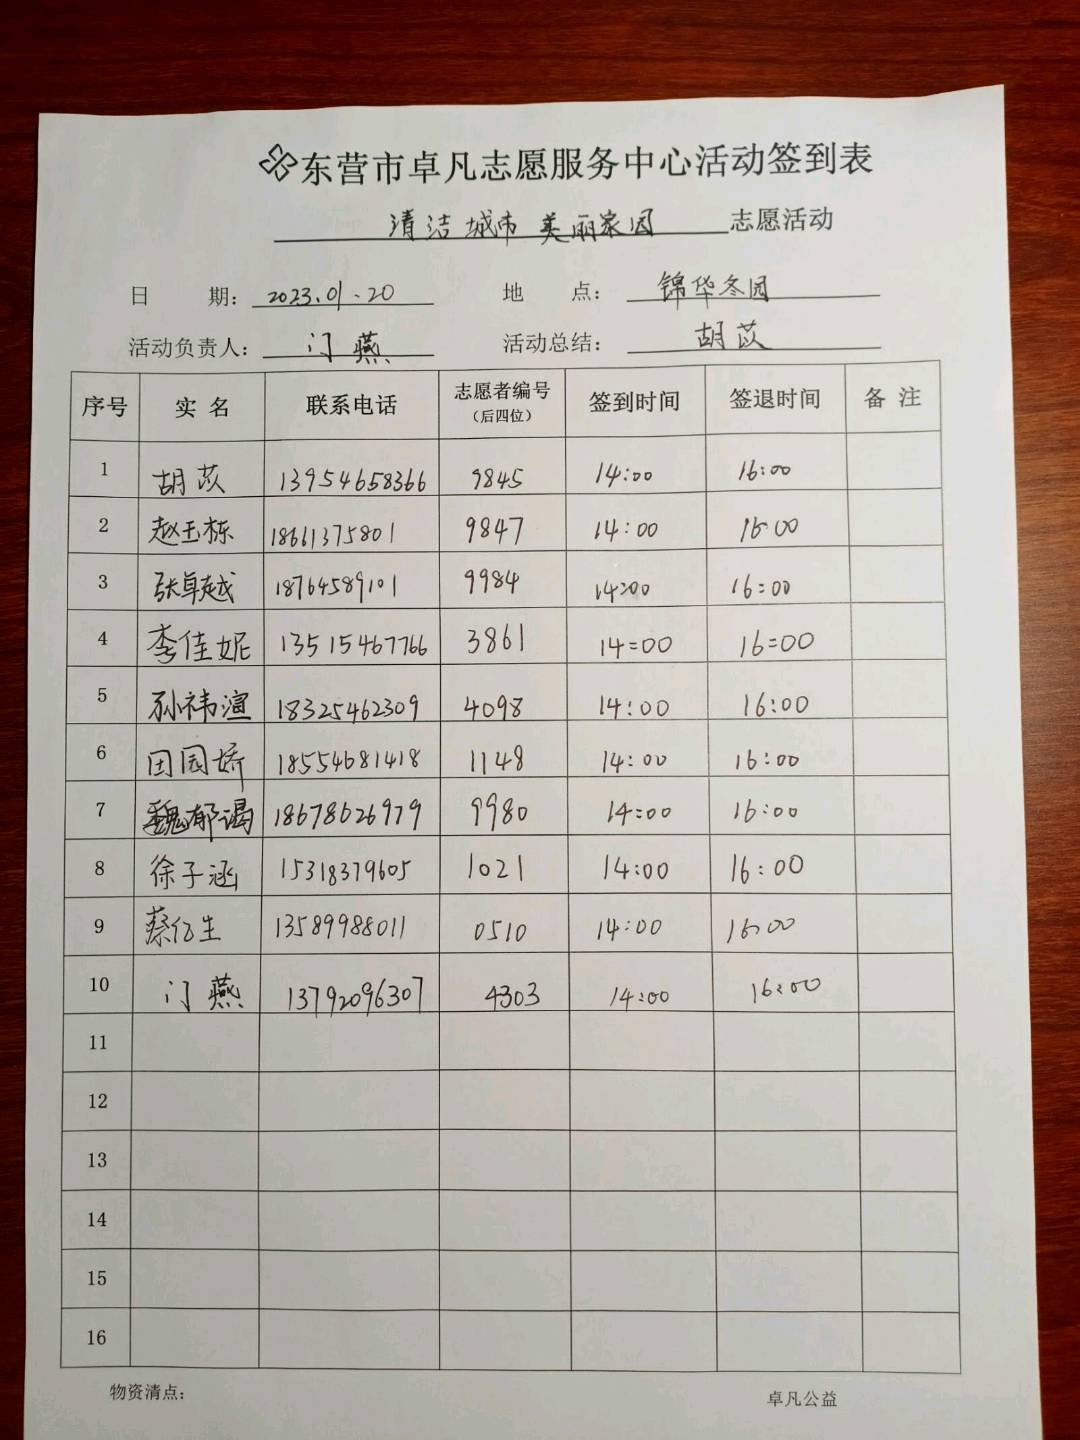 东营市卓凡志愿服务中心活动签到表
清洁城市 美丽家园 志愿活动
日 期: 2023.01.20 地 点: 锦华冬园
活动负责人: 门燕 活动总结: 胡苡
序号 实 名 联系电话 志愿者编号(后四位) 签到时间 签退时间 备 注
1 胡苡 13954658366 9845 14:00 16:00
2 赵玉栋 18661375801 9847 14:00 16:00
3 张卓越 18764589101 9984 14:00 16:00
4 李佳妮 13515467766 3861 14:00 16:00
5 孙祎渲 18325462309 4098 14:00 16:00
6 田园娇 18554681418 1148 14:00 16:00
7 魏郁 18678626979 9980 14:00 16:00
8 徐子涵 15318379605 1021 14:00 16:00
9 蔡亿生 13589988011 0510 14:00 16:00
10 门燕 13792096307 4303 14:00 16:00
11
12
13
14
15
16
物资清点: 卓凡公益